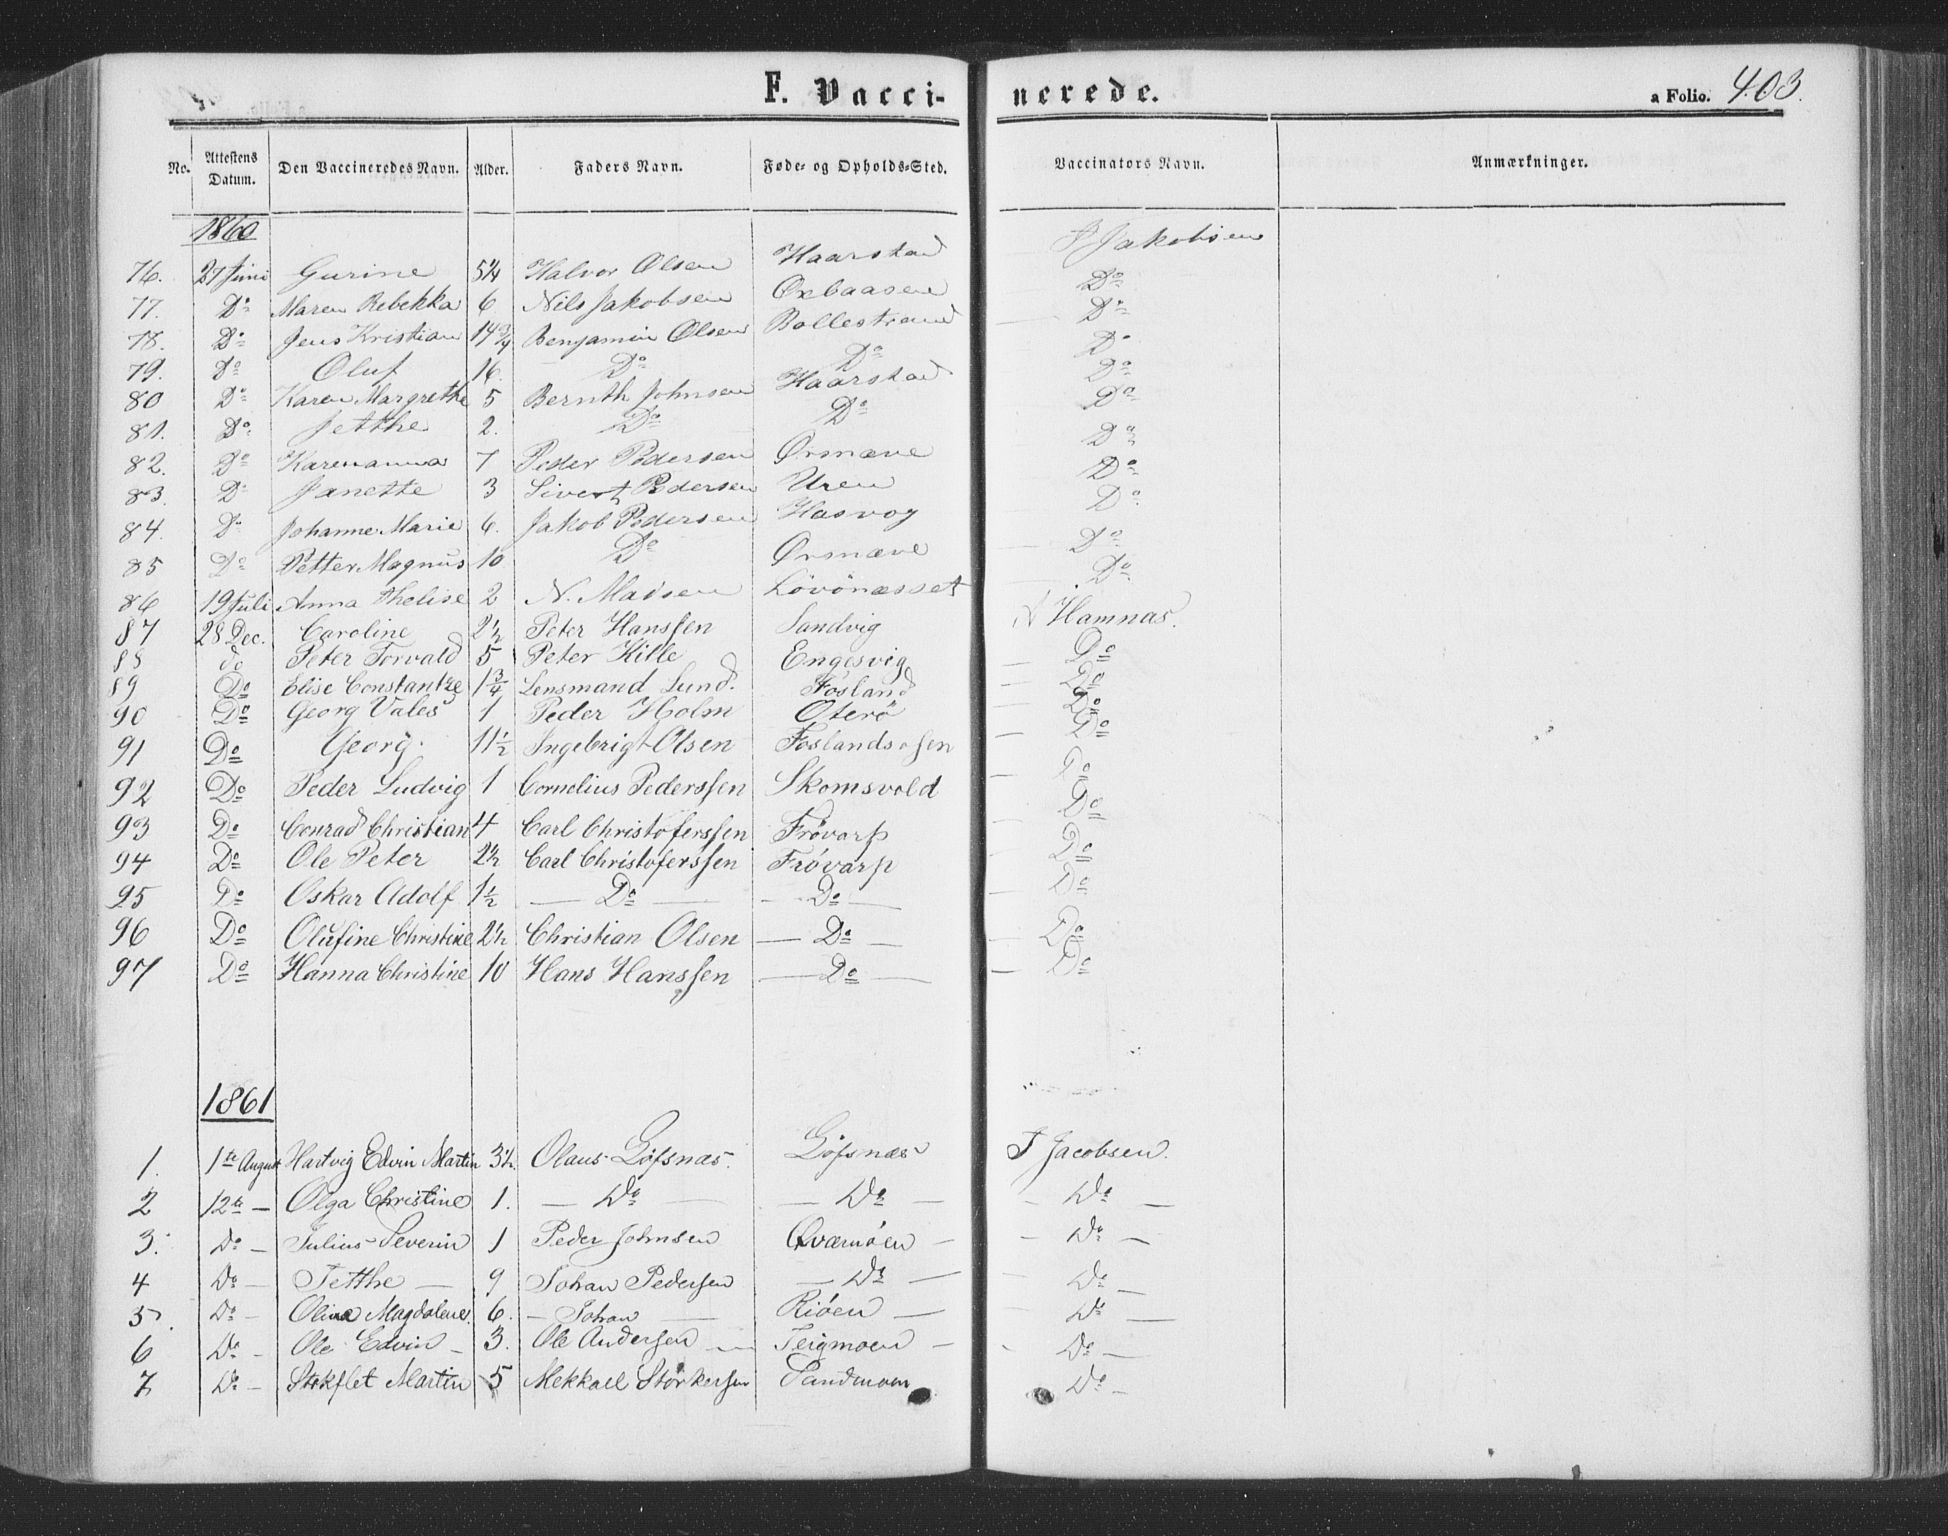 F. Vacci- nerede. a Folio. 403.
No. Attestens Datum. Den Vaccineredes Navn. Alder. Faders Navn. Føde- og Opholds-Sted. Vaccinators Navn. Anmærkninger.
1860
76. 27 Juni Gurine 5¼ Halvor Olsen Haarstad J Jakobsen
77. Do Maren Rebekka 6 Nils Jakobsen Oxbaasen Do
78. Do Jens Kristian 14¾ Benjamin Olsen Bollestrand Do
79. Do Oluf 16. Do Do Do
80 Do Karen Margrethe 5 Bernth Johnsen Haarstad Do
81. Do Jetthe 2. Do Do Do
82. Do Karenanna 7 Peder Pedersen Ørsnæve Do
83. Do Janette 3 Sivert Pedersen Uren Do
84. Do Johanne Marie 6. Jakob Pedersen Hasvog Do
85 Do Petter Magnus 10 Do Ørsnæve Do
86 19 Juli Anna Thelise 2 N. Madsen Lövönæsset Do
87 28 Dec. Caroline 2½ Peter Hanssen Sandvig Hamnas.
88 do Peter Torvald 5 Peter Hille Engesvig Do
89 Do Elise Constantze 1¾ Lensmand Lund. Fosland Do
90 Do Georg Vales 1 Peder Holm Oterö Do
91 Do Georg. 11½ Ingebrigt Olsen Foslandsosen Do
92 Do Peder Ludvig 1 Cornelius Pederssen Skomsvold Do
93 Do Conrad Christian 4 Carl Christoferssen Frövarp Do
94 Do Ole Peter 2½ Carl Christoferssen Frövarp Do
95 Do Oskar Adolf 1½ — Do — — Do — Do
96 Do Olufine Christine 2½ Christian Olsen — Do — Do
97 Do Hanna Christine 10 Hans Hanssen — Do — Do
1861
1. 1te August Hartvig Edvin Martin 3½. Olaus Göfsnæs. Göfsnæs J Jacobsen.
2 12te — Olga Christine 1. — Do — — Do — — Do —
3. Do — Julius Severin 1 Peder Johnsen Qværnöen — — Do —
4 Do — Jetthe — 9 Johan Pedersen — Do — — Do —
5. Do — Olina Magdalene. 6. — Johan — Riöen — Do —
6 Do — Ole Edvin — 3. Ole Andersen — Teigmoen — - Do —
7 Do — Stokflet Martin 5 Mekkael Storkersen Sandmoen Do —